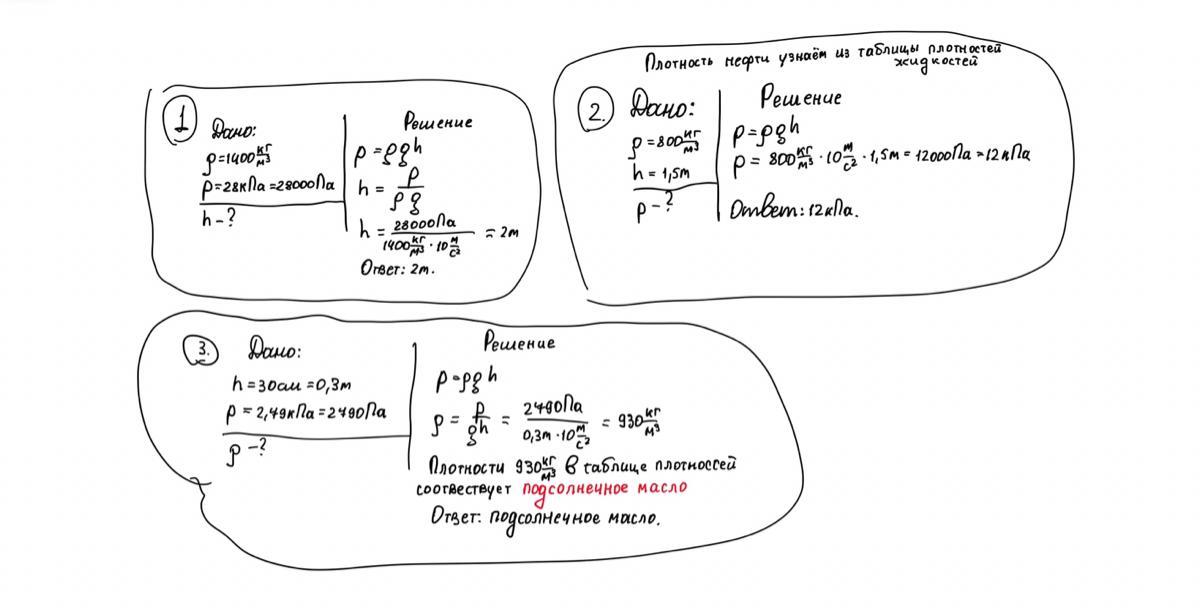 1
Дано:
ρ=1400 кг/м³
p=28кПа=28000Па
h-?
Решение
p=ρgh
h= p/ρg
h= 28000Па/1400 кг/м³ · 10 м/с² = 2м
Ответ: 2м.
Плотность нефти узнаём из таблицы плотностей
жидкостей
2.
Дано:
ρ=800 кг/м³
h=1,5м
p-?
Решение
p=ρgh
p= 800 кг/м³ · 10 м/с² · 1,5м = 12000Па=12кПа
Ответ: 12кПа.
3.
Дано:
h=30см=0,3м
p=2,49кПа=2490Па
ρ-?
Решение
p=ρgh
ρ= p/gh = 2490Па/0,3м·10 м/с² = 930 кг/м³
Плотности 930 кг/м³ в таблице плотноссей
соотвествует подсолнечное масло
Ответ: подсолнечное масло.